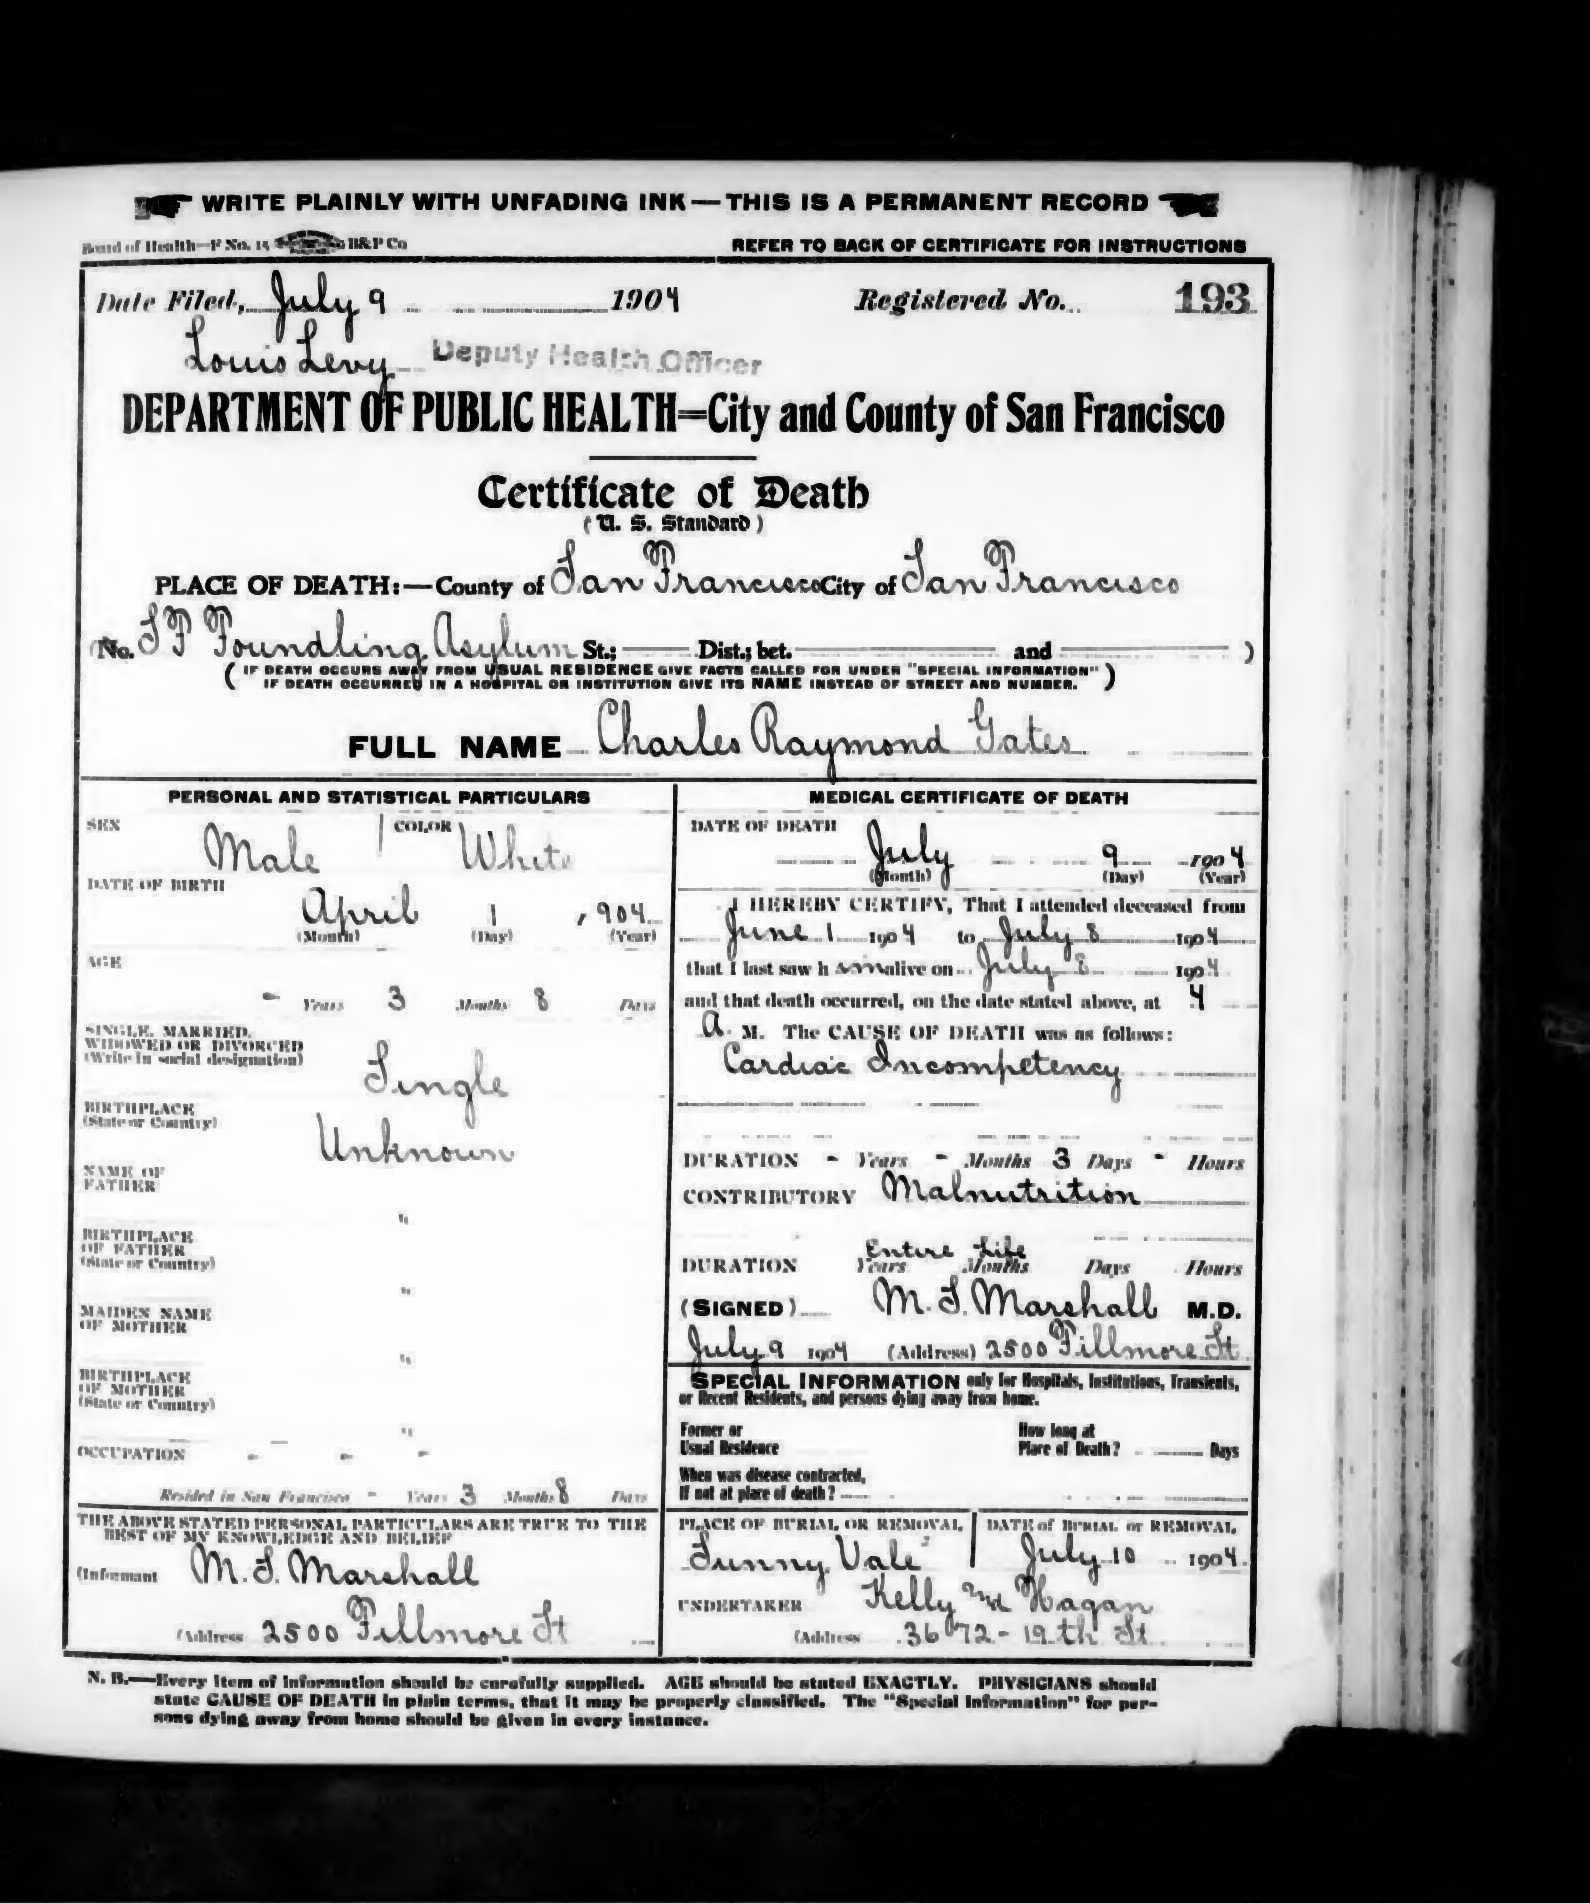 WRITE PLAINLY WITH UNFADING INK—THIS IS A PERMANENT RECORD
Board of Health—F No. 15 B&P Co REFER TO BACK OF CERTIFICATE FOR INSTRUCTIONS
Date Filed, July 9 1904 Registered No. 193
Louis Levy Deputy Health Officer
DEPARTMENT OF PUBLIC HEALTH=City and County of San Francisco
Certificate of Death
(U. S. Standard)
PLACE OF DEATH:—County of San Francisco City of San Francisco
(No. S F Foundling Asylum St.; Dist.; bet. and )
(IF DEATH OCCURS AWAY FROM USUAL RESIDENCE GIVE FACTS CALLED FOR UNDER "SPECIAL INFORMATION"
IF DEATH OCCURRED IN A HOSPITAL OR INSTITUTION GIVE ITS NAME INSTEAD OF STREET AND NUMBER.)
FULL NAME Charles Raymond Gates
PERSONAL AND STATISTICAL PARTICULARS
SEX Male COLOR White
DATE OF BIRTH
April 1 , 904
(Month) (Day) (Year)
AGE
- Years 3 Months 8 Days
SINGLE, MARRIED,
WIDOWED OR DIVORCED
(Write in social designation)
Single
BIRTHPLACE
(State or Country)
Unknown
NAME OF
FATHER
"
BIRTHPLACE
OF FATHER
(State or Country)
"
MAIDEN NAME
OF MOTHER
"
BIRTHPLACE
OF MOTHER
(State or Country)
"
OCCUPATION - - -
Resided in San Francisco - Years 3 Months 8 Days
THE ABOVE STATED PERSONAL PARTICULARS ARE TRUE TO THE
BEST OF MY KNOWLEDGE AND BELIEF
(Informant M. S. Marshall
(Address 2500 Fillmore St
MEDICAL CERTIFICATE OF DEATH
DATE OF DEATH
July 9 1904
(Month) (Day) (Year)
I HEREBY CERTIFY, That I attended deceased from
June 1 1904 to July 8 1904
that I last saw h im alive on July 8 1904
and that death occurred, on the date stated above, at 4
A. M. The CAUSE OF DEATH was as follows:
Cardiac Incompetency
DURATION - Years - Months 3 Days - Hours
CONTRIBUTORY Malnutrition
Entire Life
DURATION Years Months Days Hours
(SIGNED) M. S. Marshall M.D.
July 9 1904 (Address) 2500 Fillmore St
SPECIAL INFORMATION only for Hospitals, Institutions, Transients,
or Recent Residents, and persons dying away from home.
Former or
Usual Residence
How long at
Place of Death? Days
When was disease contracted,
If not at place of death?
PLACE OF BURIAL OR REMOVAL
Sunny Vale
DATE of BURIAL or REMOVAL
July 10 1904
UNDERTAKER Kelly and Hagan
(Address 3672-19th St
N. B.—Every item of information should be carefully supplied. AGE should be stated EXACTLY. PHYSICIANS should
state CAUSE OF DEATH in plain terms, that it may be properly classified. The "Special Information" for per-
sons dying away from home should be given in every instance.